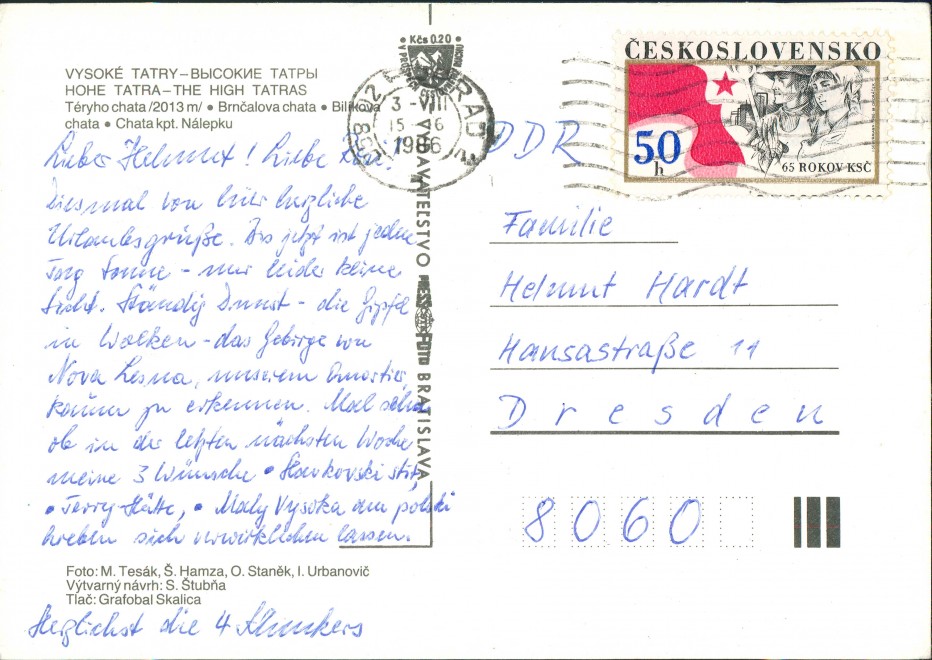 VYSOKÉ TATRY–ВЫСОКИЕ ТАТРЫ
HOHE TATRA–THE HIGH TATRAS
Téryho chata/2013 m/ • Brnčalova chata • Bilíkova
chata • Chata kpt. Nálepku
Lieber Helmut! Liebe
Diesmal von hier herzliche
Urlaubsgrüße. Bis jetzt ist jeden
Tag Sonne - nur leider keine
Sicht. Ständig Dunst - die Gipfel
in Wolken - das Gebirge von
Nova Lesna, unserem Quartier,
kaum zu erkennen. Mal sehn
ob in der letzten nächsten Woche
meine 3 Wünsche • Slavkovski stit,
• Terry-Hütte, • Maly Vysoka am polski
hreben sich verwirklichen lassen.
Foto: M. Tesák, Š. Hamza, O. Staněk, I. Urbanovič
Výtvarný návrh: S. Štubňa
Tlač: Grafobal Skalica
Herzlichst die 4
Kčs 0.20
VYDAVATEĽSTVO PRESSFOTO BRATISLAVA
058 02
3 -VIII
15 6
1986
ČESKOSLOVENSKO
50 h
65 ROKOV KSČ
DDR
Familie
Helmut Hardt
Hansastraße 11
Dresden
8060